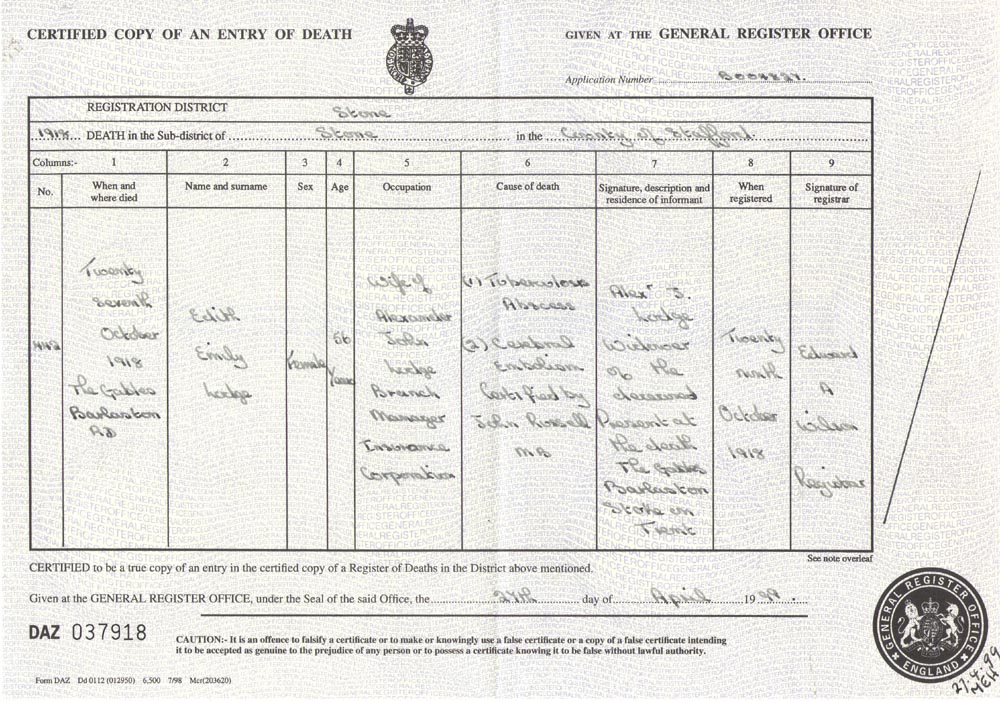 CERTIFIED COPY OF AN ENTRY OF DEATH
GIVEN AT THE GENERAL REGISTER OFFICE
Application Number
REGISTRATION DISTRICT Stone
1918 DEATH in the Sub-district of Stone in the County of Stafford
Columns:- 1 2 3 4 5 6 7 8 9
No. When and where died Name and surname Sex Age Occupation Cause of death Signature, description and residence of informant When registered Signature of registrar
Twenty
Seventh
October
1918
The Gables
Barlaston
RD
Edith
Emily
Lodge
Female
56
Years
Wife of
Alexander
John
Lodge
Branch
Manager
Insurance
Corporation
(1) Tuberculous
Abscess
(2) Cerebral
Embolism
Certified by
John Russell
MB
Alexr J.
Lodge
Widower
of the
deceased
Present at
the death
The Gables
Barlaston
Stoke on
Trent
Twenty
ninth
October
1918
Edward
A
Wilson
Registrar
See note overleaf
CERTIFIED to be a true copy of an entry in the certified copy of a Register of Deaths in the District above mentioned.
Given at the GENERAL REGISTER OFFICE, under the Seal of the said Office, the 27th day of April 1999
DAZ 037918
CAUTION:- It is an offence to falsify a certificate or to make or knowingly use a false certificate or a copy of a false certificate intending
it to be accepted as genuine to the prejudice of any person or to possess a certificate knowing it to be false without lawful authority.
Form DAZ Dd 0112 (012950) 6,500 7/98 Mcr(203620)
GENERAL REGISTER OFFICE
ENGLAND
27.4.99
MEH